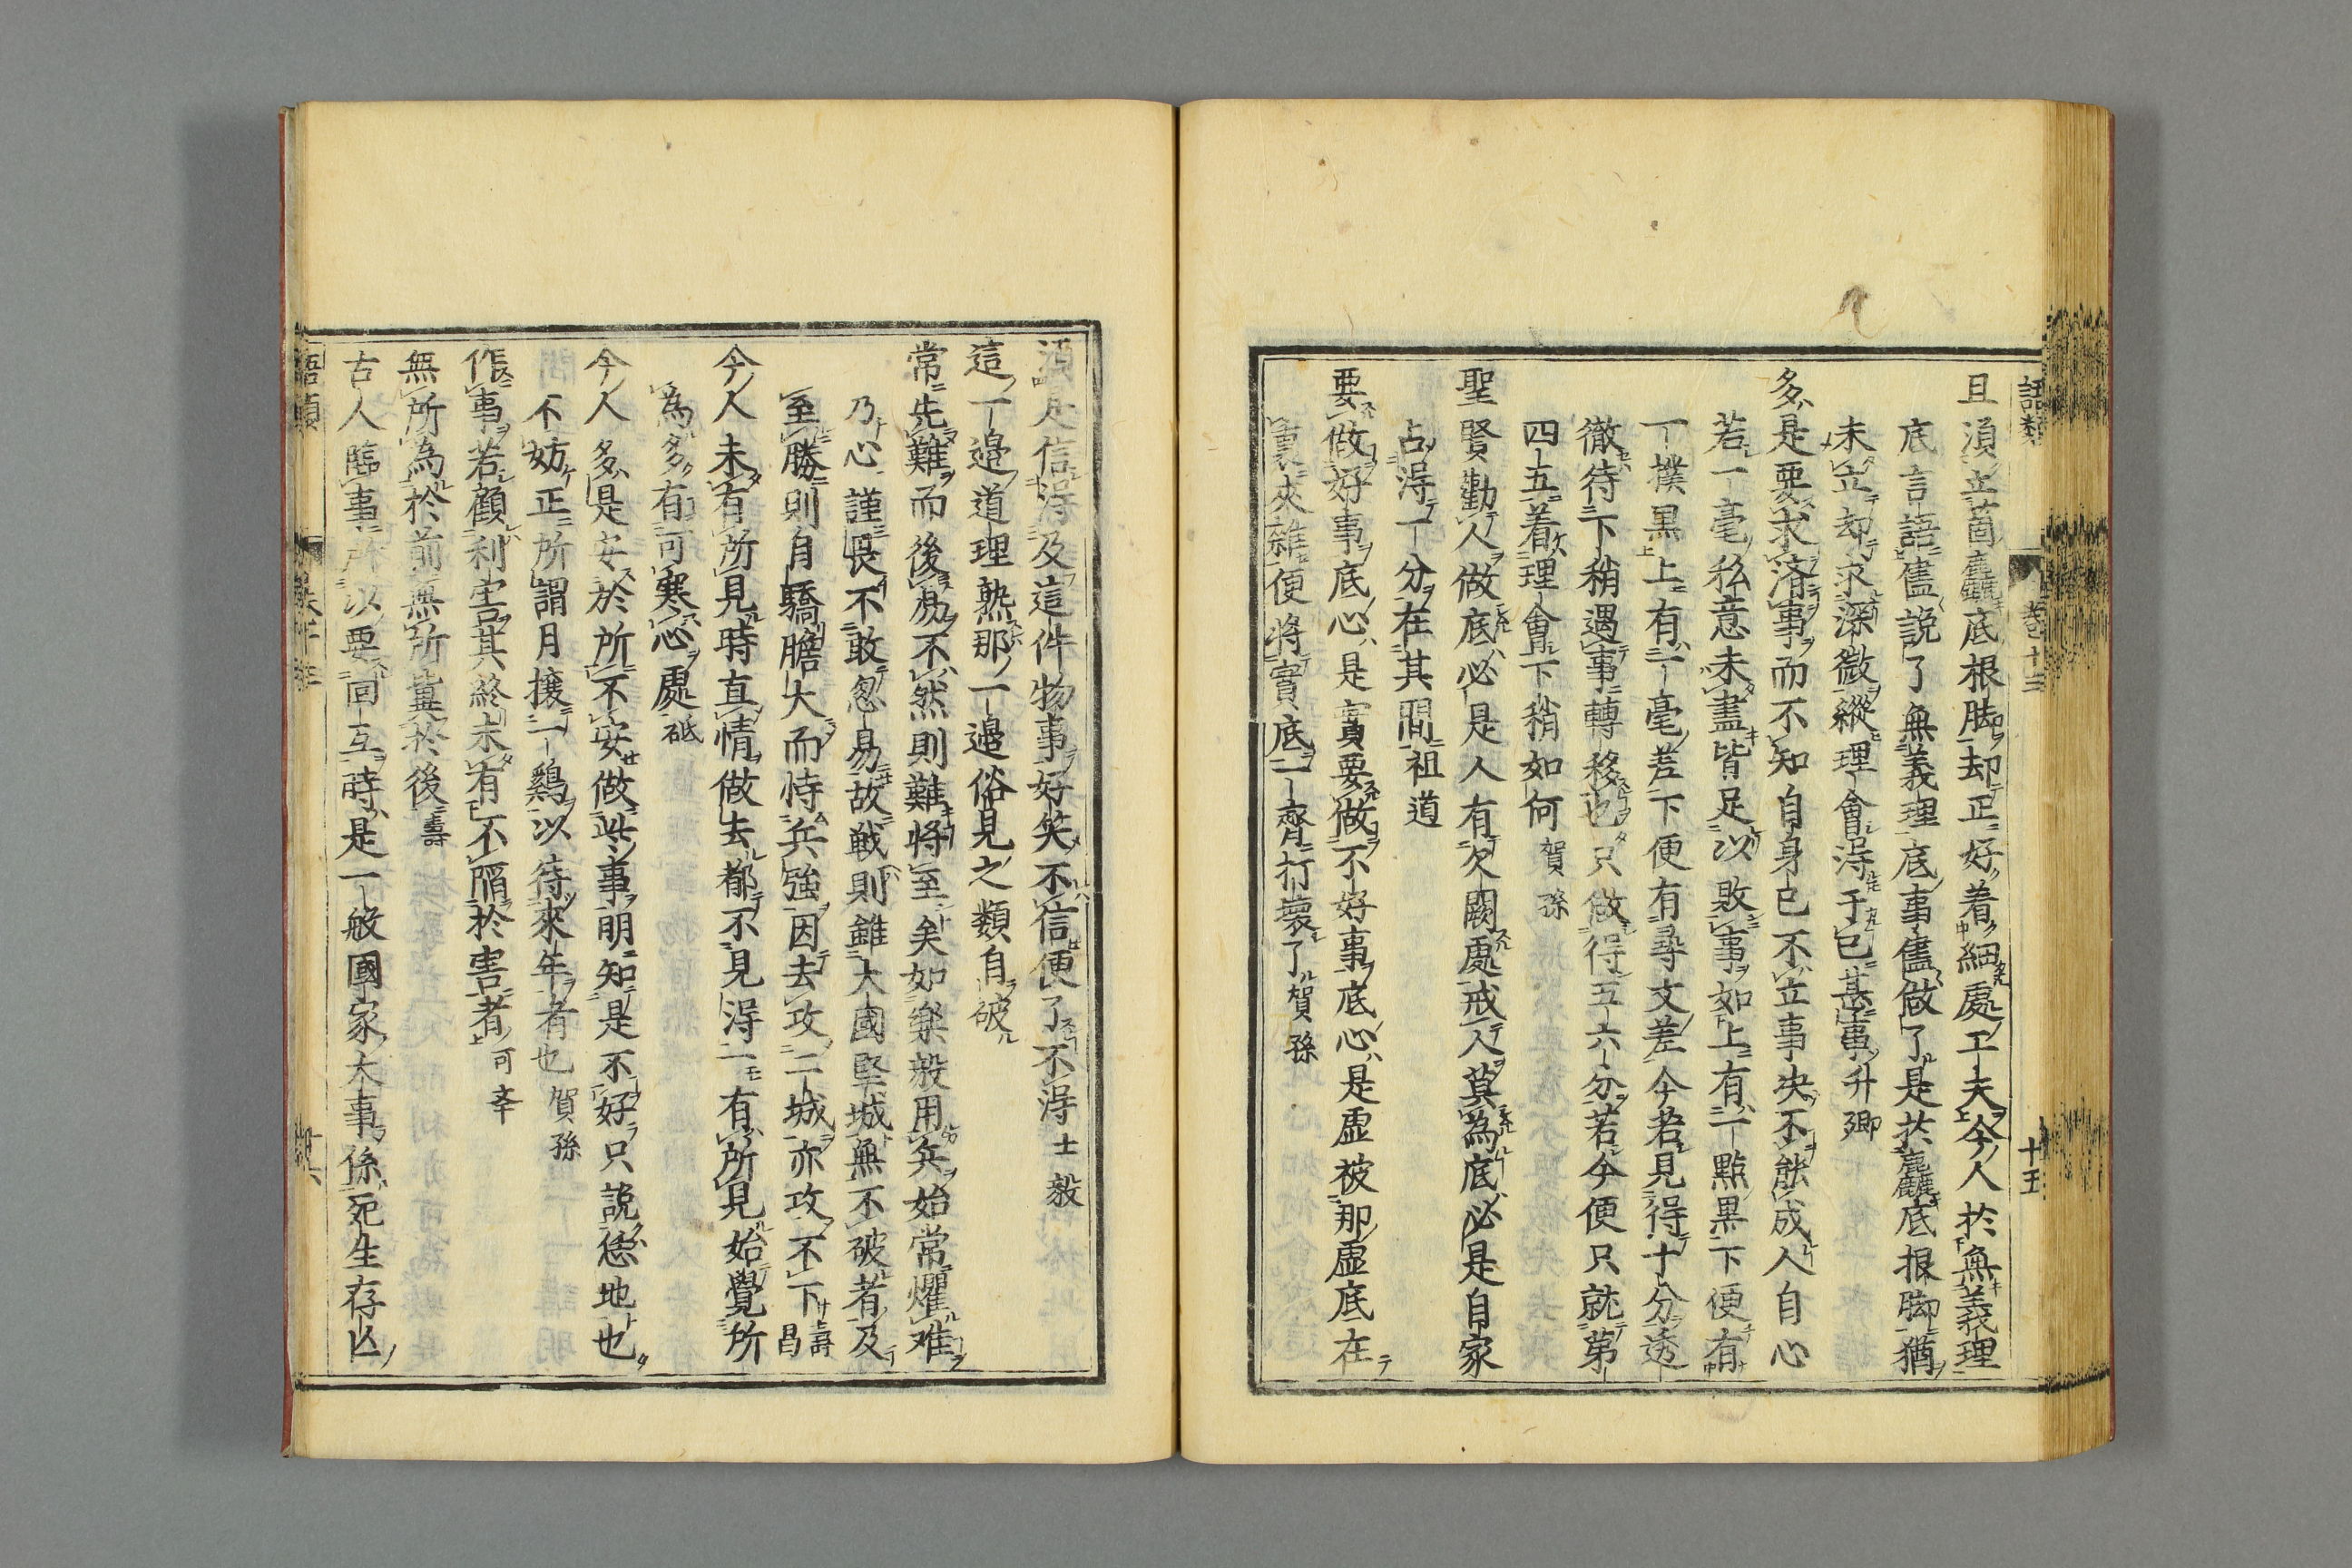 語類
卷十三
十五
且湏立箇麤底根脚却正好着細處工夫今人於無義理
底言語儘説了無義理底事儘做了是於麤底根脚猶
未立却求深微縱理會得干己甚事升卿
多是要求濟事而不知自身已不立事决不能成人自心
若一毫私意未盡皆足以敗事如上有一點黒下便有
一撲黒上有一毫差下便有尋丈差今若見得十分透
徹待下稍遇事轉移也只做得五六分若今便只就第
四五着理會下稍如何賀孫
聖賢勸人做底必是人有欠闕處戒人莫為底必是自家
占得一分在其間祖道
要做好事底心是實要做不好事底心是虚被那虚底在
裏夾雜便將實底一齊打壞了賀孫
湏是信得及這件物事好笑不信便了不得士毅
這一邉道理熟那一邉俗見之類自破
常先難而後易不然則難將至矣如樂毅用兵始常懼难
乃心謹畏不敢忽易故戦則雖大國堅城無不破者及
至勝則自驕膽大而恃兵強因去攻二城亦攻不下壽昌
今人未有所見時直情做去都不見得一有所見始覺所
為多有可寒心處砥
今人多是安於所不安做此事明知是不好只説恁地也
不妨正所謂月攘一鷄以待來年者也賀孫
作事若顧利害其終未有不䧟於害者可斈
無所為於前無所兾於後壽
古人臨事所以要回互時是一般國家大事係死生存亾
語類